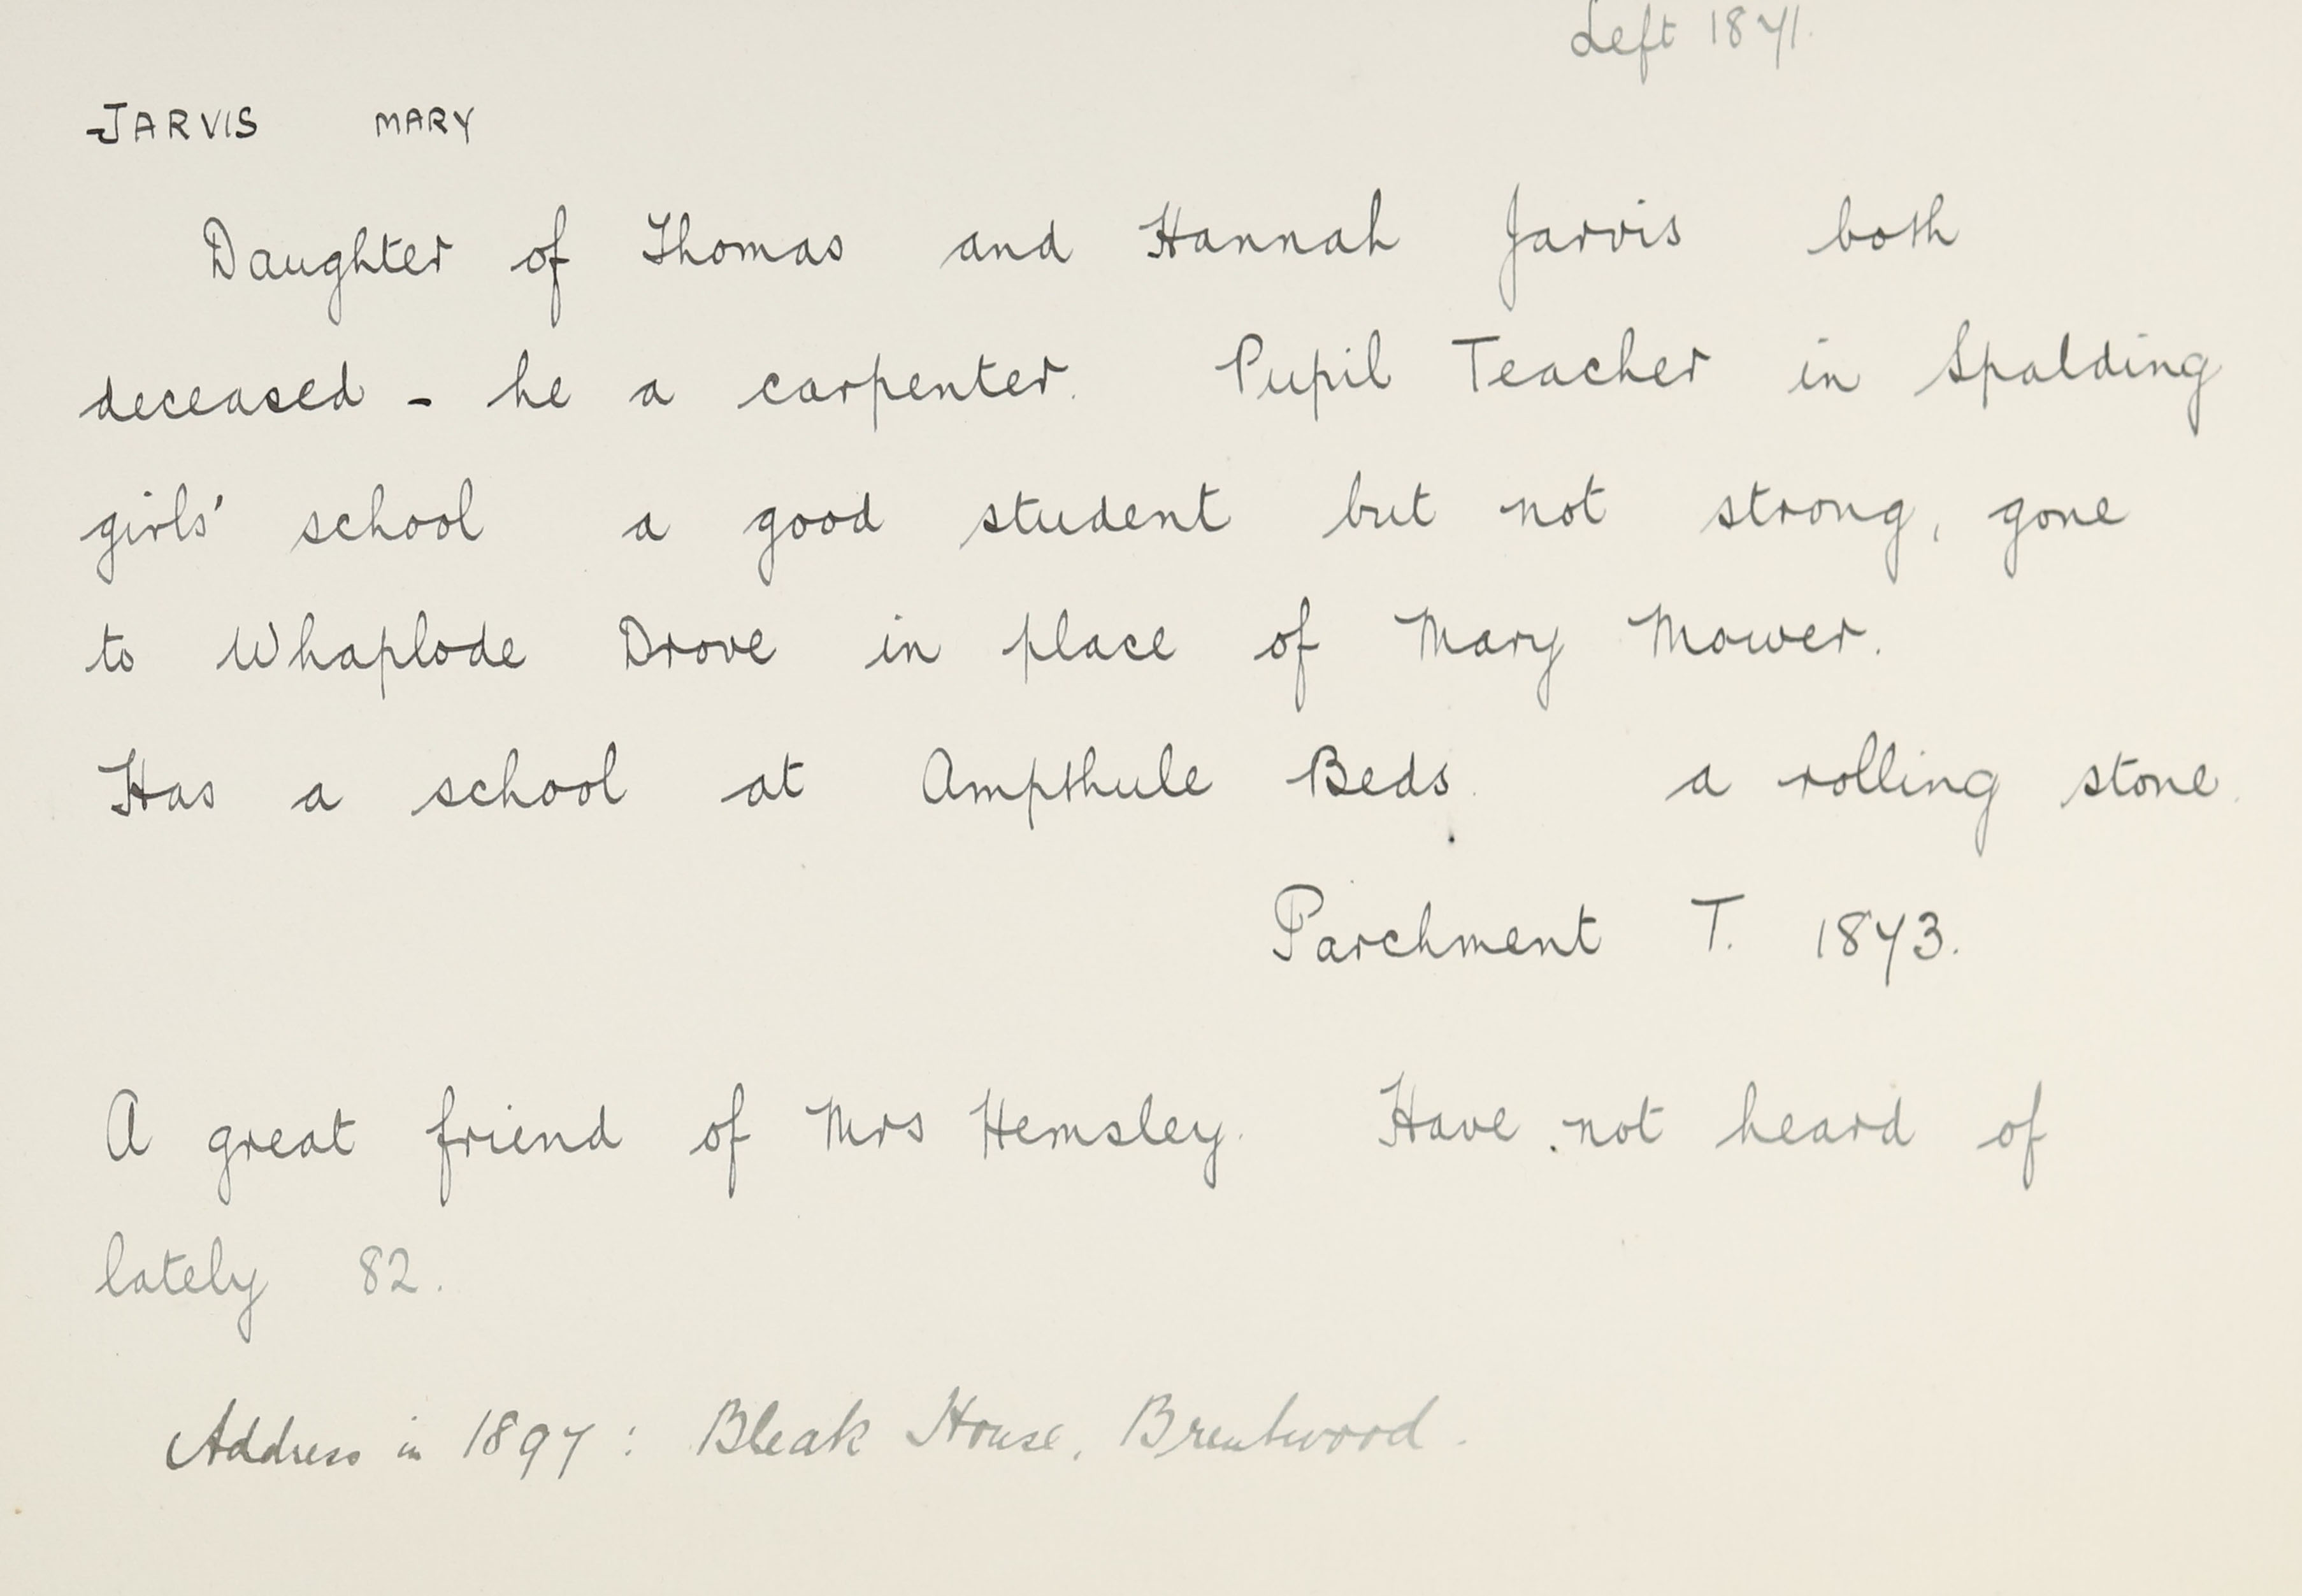 Left 1871.
JARVIS MARY
Daughter of Thomas and Hannah Jarvis both
deceased - he a carpenter. Pupil Teacher in Spalding
girls' school a good student but not strong, gone
to Whaplode Drove in place of Mary Mower.
Has a school at Ampthule Beds. a rolling stone.
Parchment T. 1873.
A great friend of Mrs Hemsley. Have not heard of
lately 82.
Address in 1897: Bleak House, Brentwood.